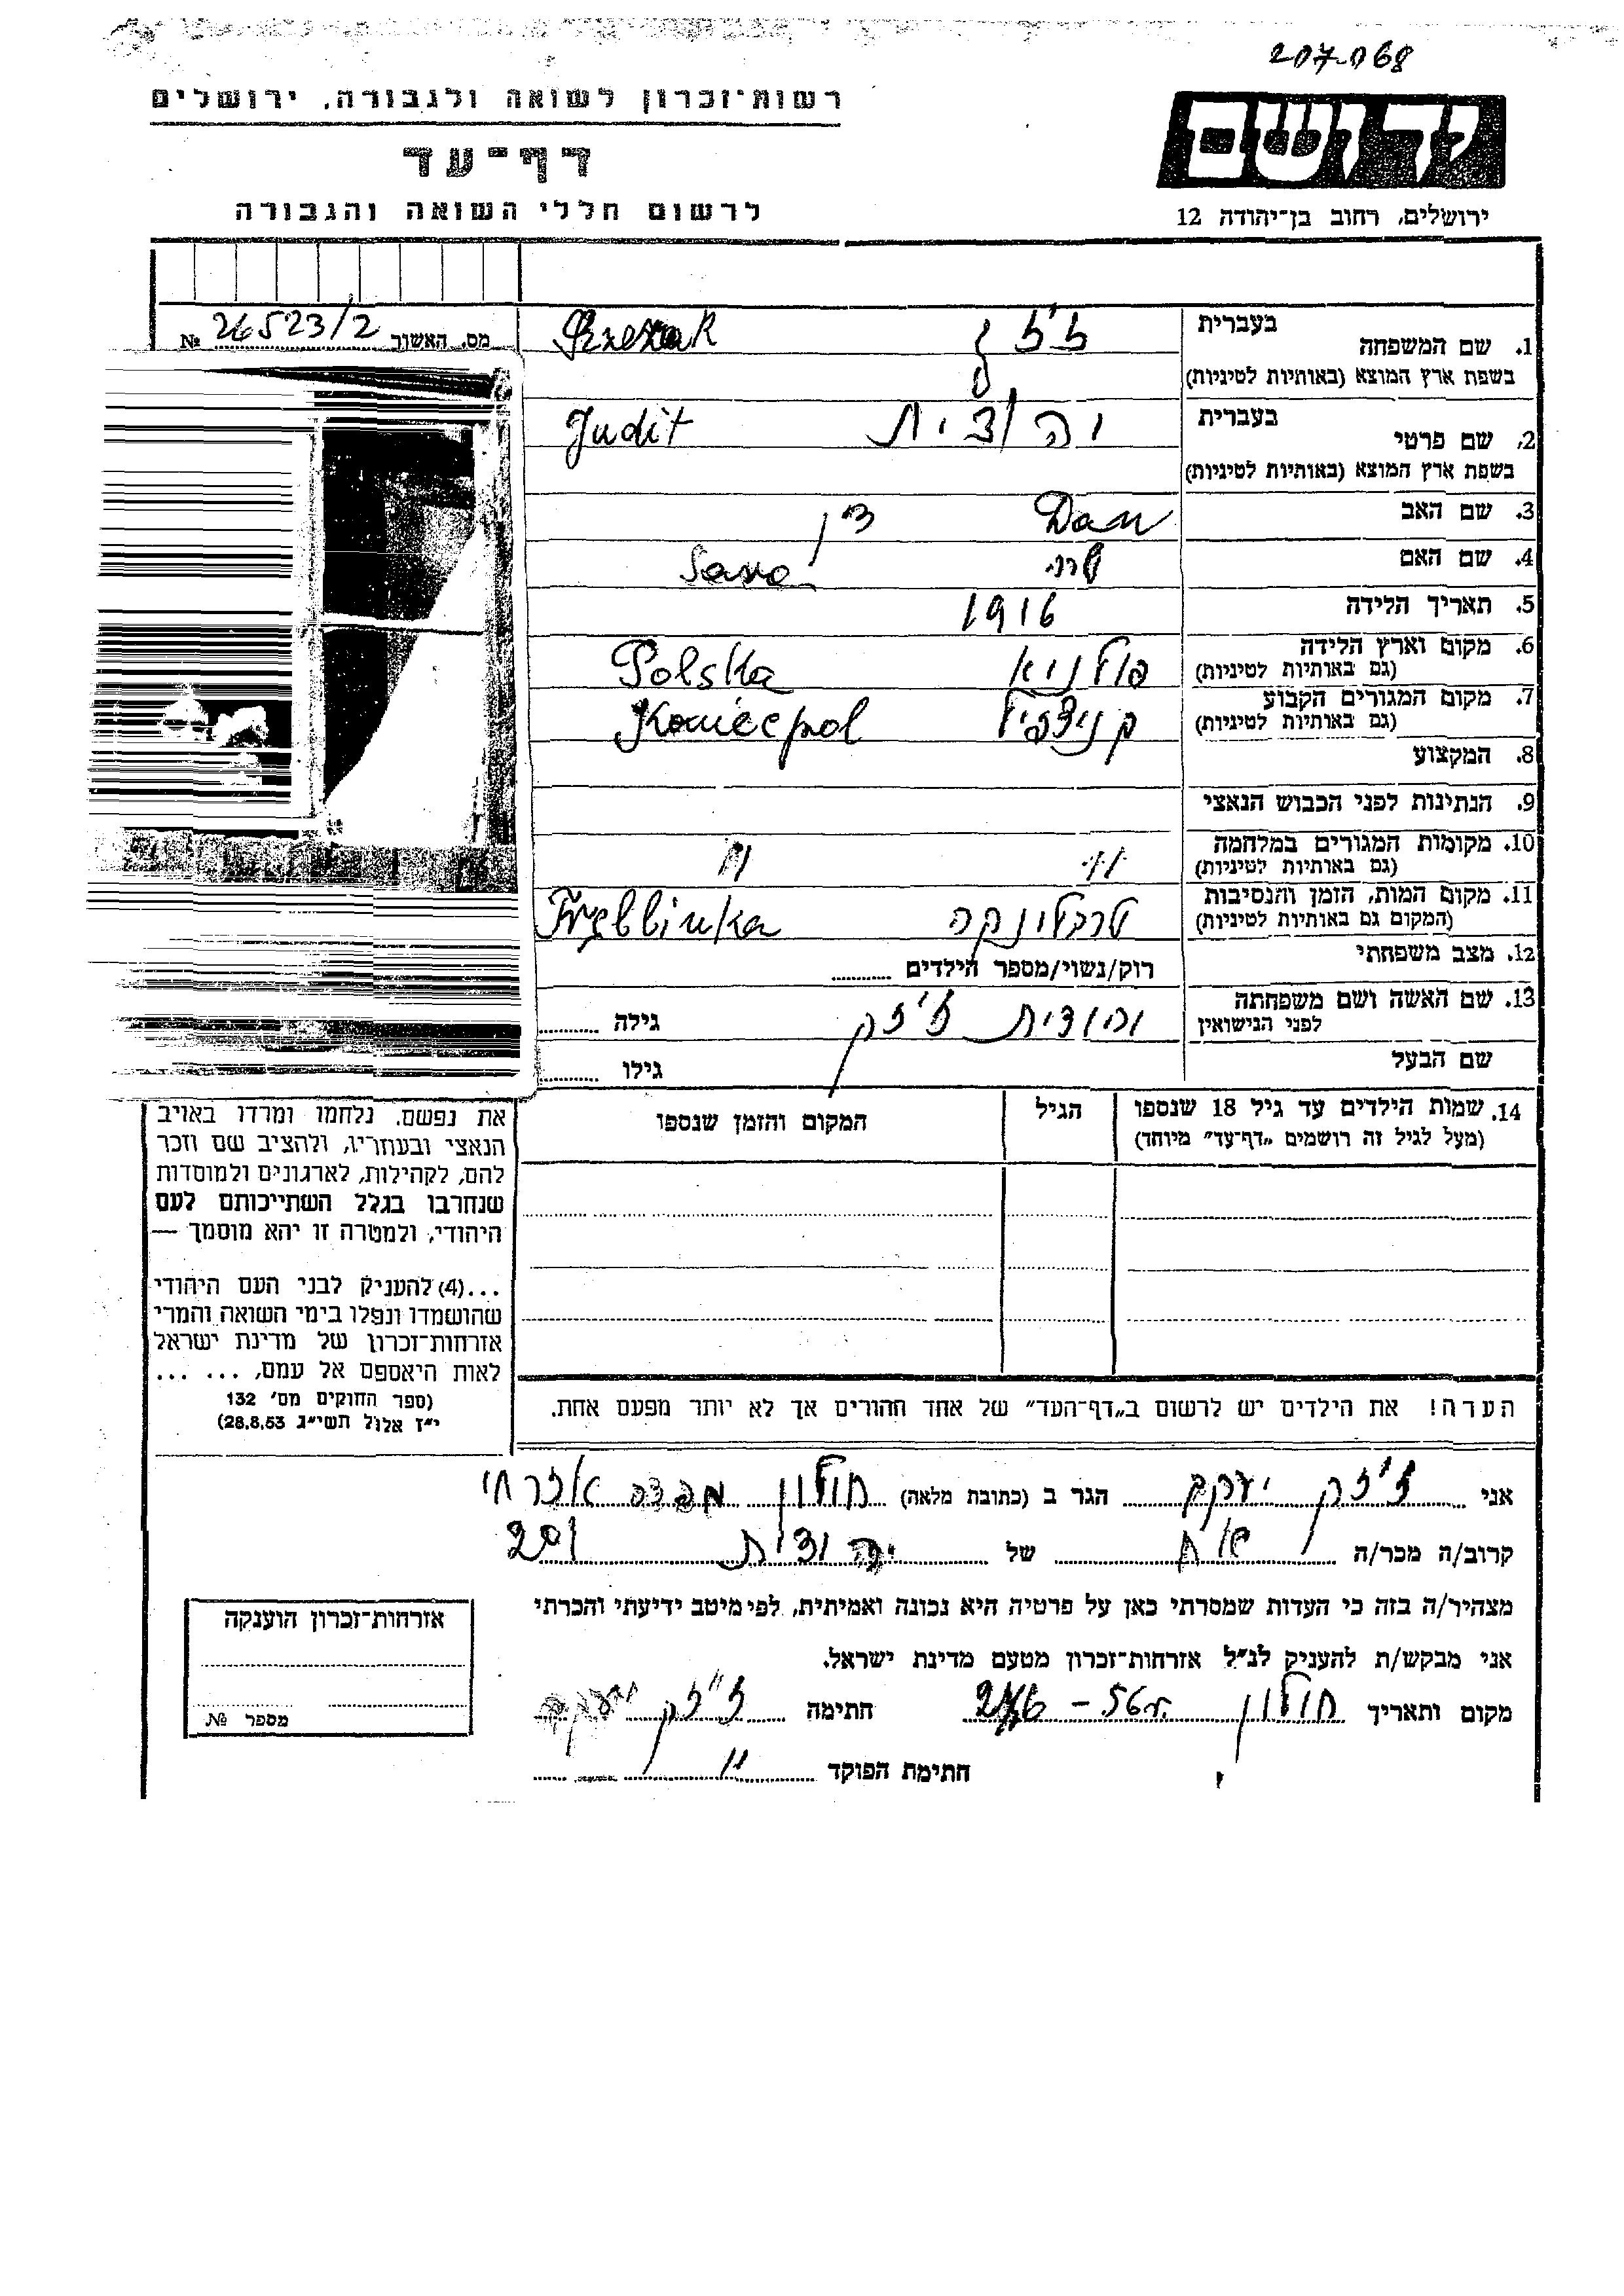 207068
יד ושם
ירושלים, רחוב בן־יהודה 12
רשות־זכרון לשואה ולגבורה, ירושלים
דף־עד
לרשום חללי השואה והגבורה
מס. האשור 26523/2 №
1. שם המשפחה
בעברית
בשפת ארץ המוצא (באותיות לטיניות)
2. שם פרטי
בעברית יהודית Judit
בשפת ארץ המוצא (באותיות לטיניות)
3. שם האב Dan דן
4. שם האם שרה Sara
5. תאריך הלידה 1916
6. מקום וארץ הלידה פולניא Polska
(גם באותיות לטיניות)
7. מקום המגורים הקבוע Koniecpol
(גם באותיות לטיניות)
8. המקצוע
9. הנתינות לפני הכבוש הנאצי
10. מקומות המגורים במלחמה " "
(גם באותיות לטיניות)
11. מקום המות, הזמן והנסיבות טרבלינקה Trebblinka
(המקום גם באותיות לטיניות)
12. מצב משפחתי רוק/נשוי/מספר הילדים
13. שם האשה ושם משפחתה יהודית גילה
לפני הנישואין
שם הבעל גילו
14. שמות הילדים עד גיל 18 שנספו הגיל המקום והזמן שנספו
(מעל לגיל זה רושמים „דף־עד" מיוחד)
את נפשם, נלחמו ומרדו באויב
הנאצי ובעוזריו, ולהציב שם וזכר
להם, לקהילות, לארגונים ולמוסדות
שנחרבו בגלל השתייכותם לעם
היהודי, ולמטרה זו יהא מוסמך —
...(4) להעניק לבני העם היהודי
שהושמדו ונפלו בימי השואה והמרי
אזרחות־זכרון של מדינת ישראל
לאות היאספם אל עמם, ... ...
(ספר החוקים מס' 132
י"ז אלול תשי"ג 28.8.53)
הערה! את הילדים יש לרשום ב„דף־העד" של אחד ההורים אך לא יותר מפעם אחת.
אני יעקב הגר ב (כתובת מלאה) חולון אזרחי
קרוב/ה מכר/ה אח של יהודית
מצהיר/ה בזה כי העדות שמסרתי כאן על פרטיה היא נכונה ואמיתית, לפי מיטב ידיעתי והכרתי
אני מבקש/ת להעניק לנ"ל אזרחות־זכרון מטעם מדינת ישראל.
מקום ותאריך חולון חתימה
חתימת הפוקד
אזרחות־זכרון הוענקה
מספר №